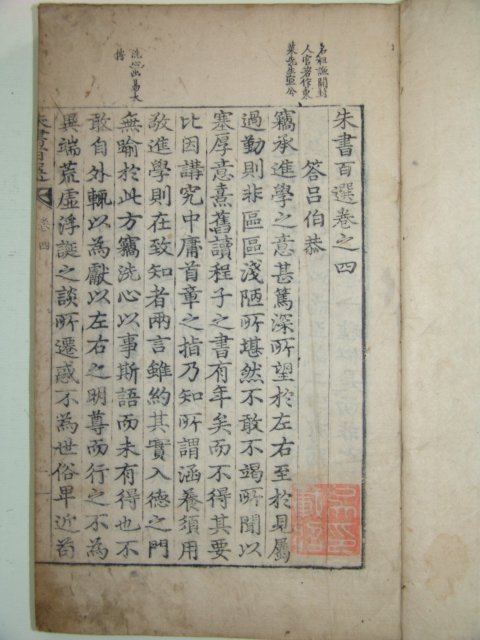 朱書百選卷之四
答呂伯恭
竊承進學之意甚篤深所望於左右至於見屬
過勤則非區區淺陋所堪然不敢不竭所聞以
塞厚意熹舊讀程子之書有年矣而不得其要
比因講究中庸首章之指乃知所謂涵養須用
敬進學則在致知者兩言雖約其實入德之門
無踰於此方竊洗心以事斯語而未有得也不
敢自外輒以為獻以左右之明尊而行之不為
異端荒虛浮誕之談所遷惑不為世俗卑近苟
名祖謙開封
人官著作
萊先生
洗心出易大
傳
朱書百選
卷四